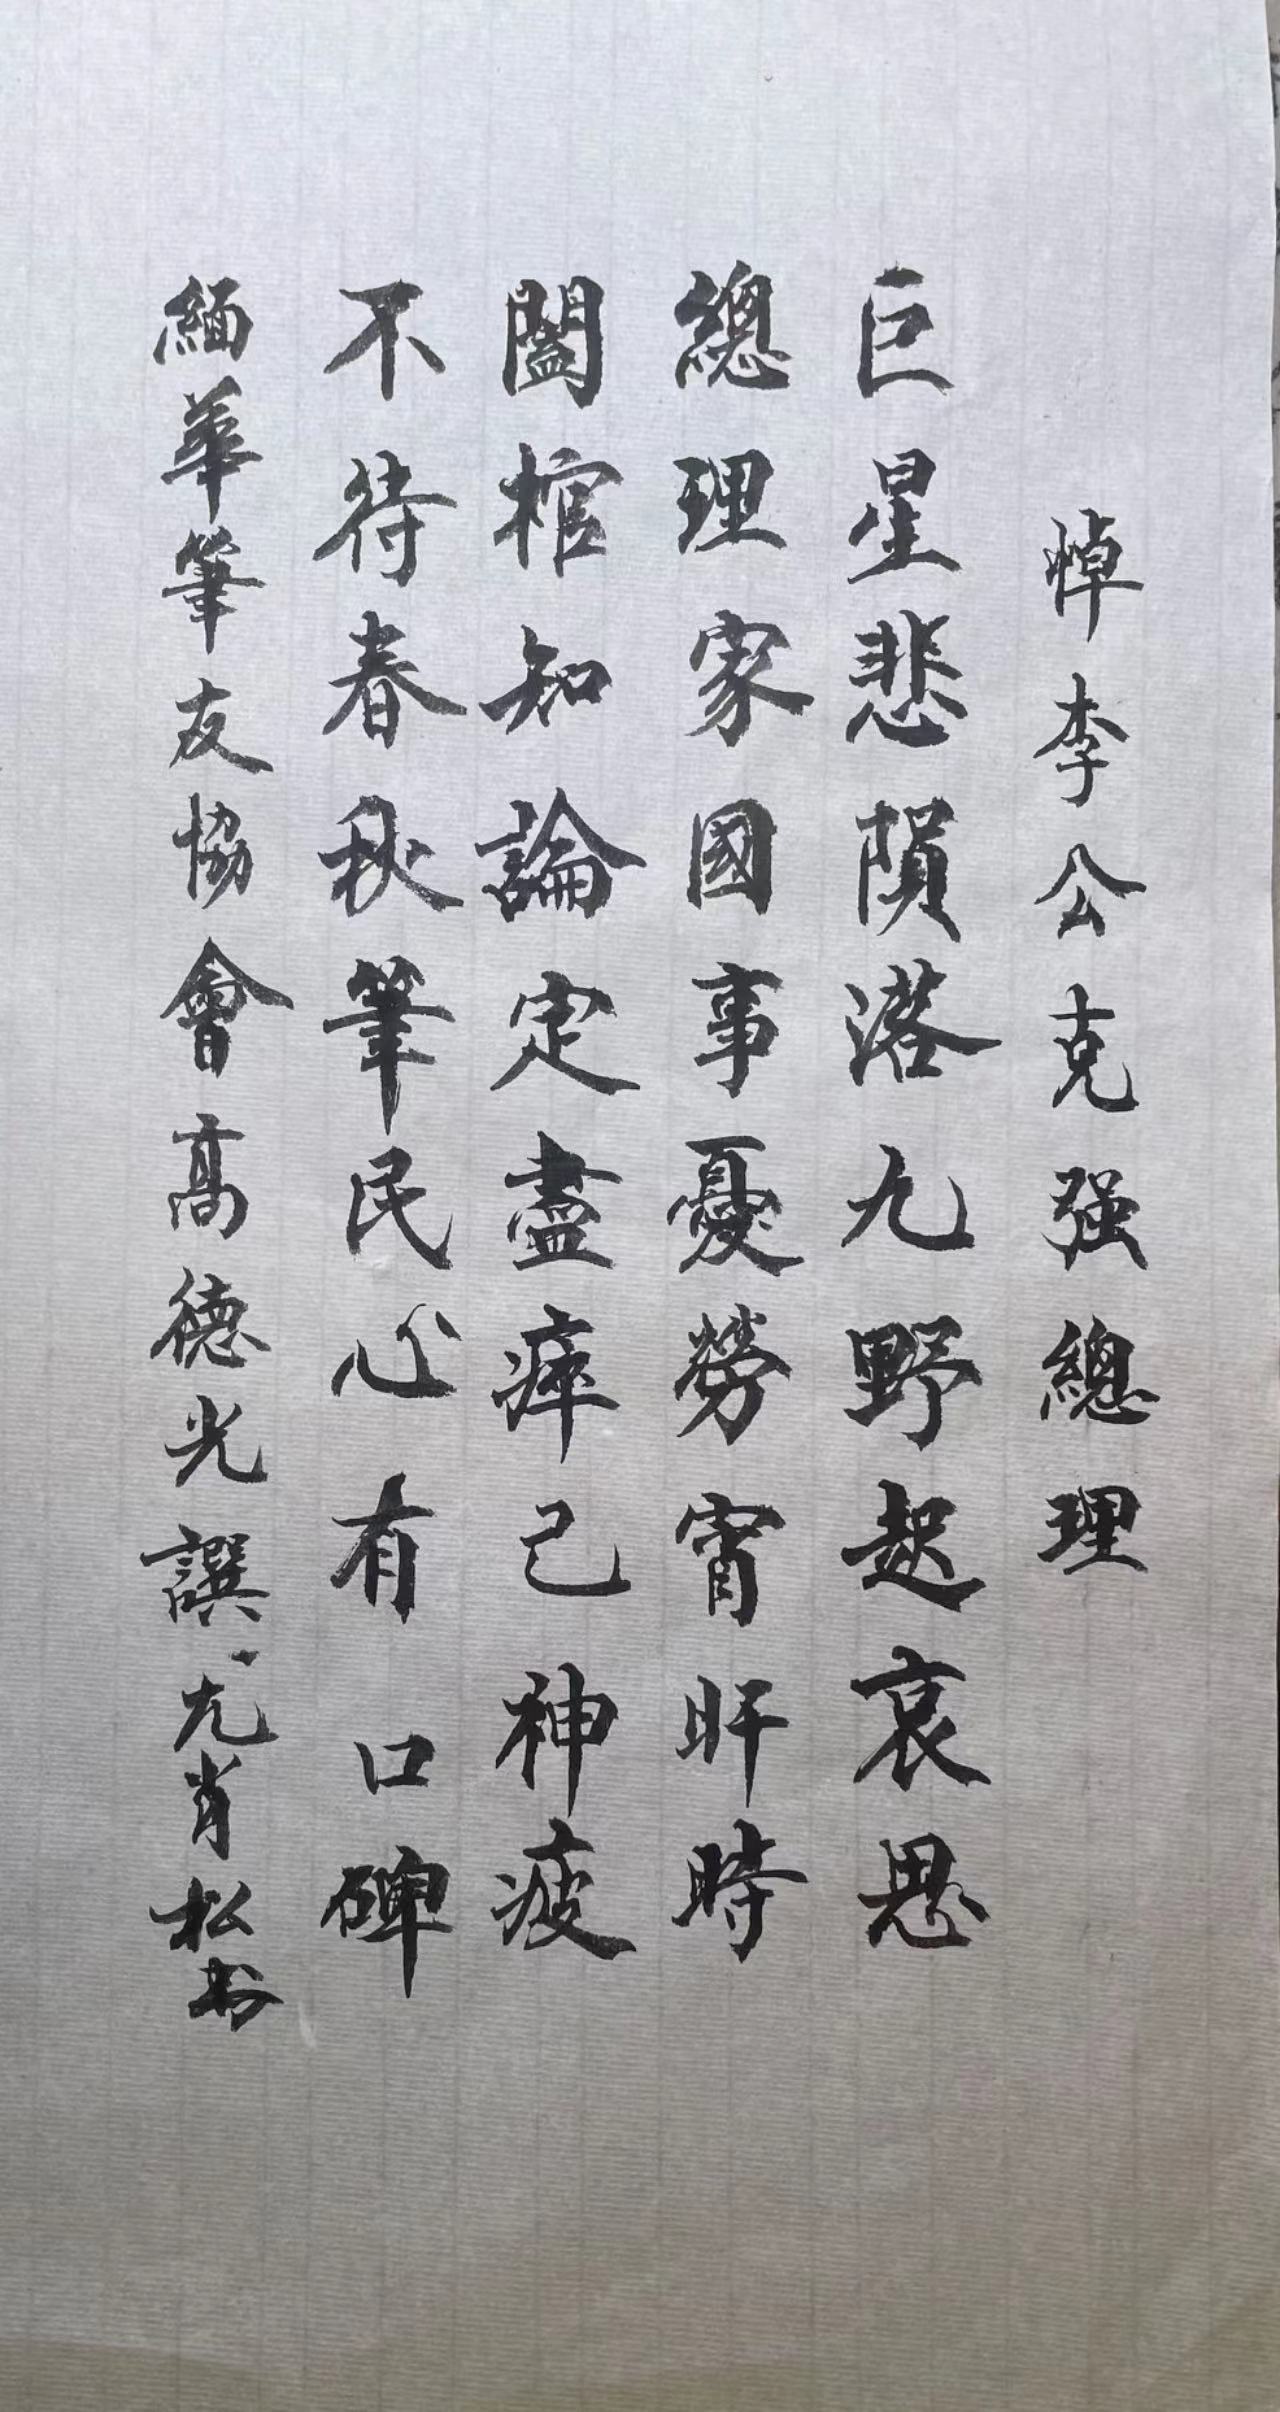 悼李公克强總理
巨星悲隕落九野起哀思
總理家國事憂勞宵旰時
闔棺知論定盡瘁己神疲
不待春秋筆民心有口碑
緬華筆友協會高德光譔、尤肖松书